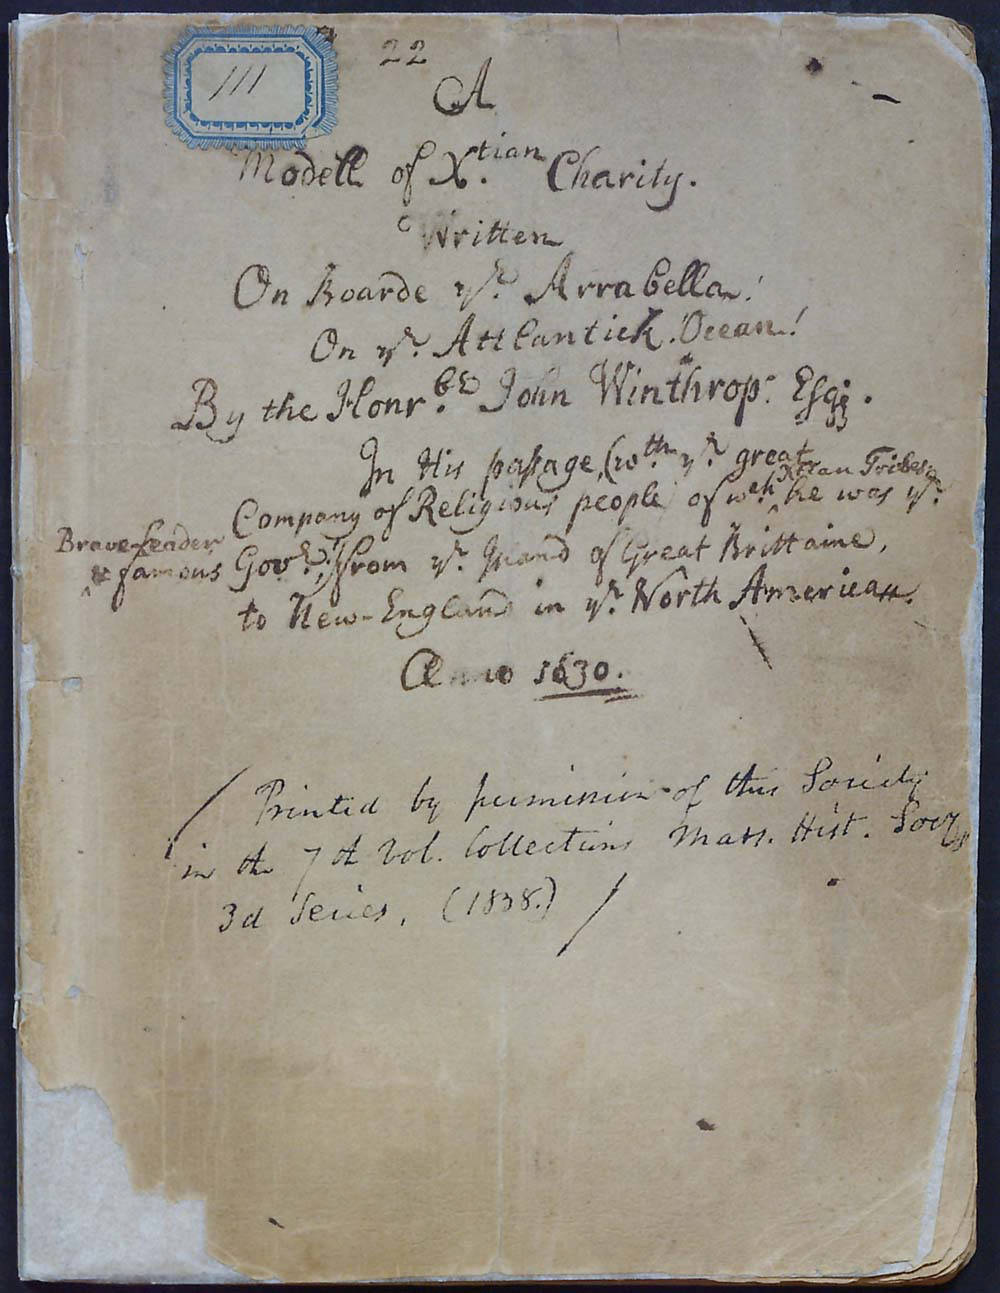 111
22
A
Modell of X.tian Charity.
Written
On Boarde ye. Arrabella!
On ye. Attlantick. Ocean!
By the Honr.ble John Winthrop. Esqr.
In His passage, (wth. ye. great
Company of Religious people, of wch. Xtian Tribes he was ye.
Brave Leader & famous Govr.;) from ye. Island of Great Brittaine,
to New-England in ye. North America.
Anno 1630.
Printed by permission of this Society
in the 7th Vol. Collections Mass. Hist. Socy,
3d Series, (1838.)